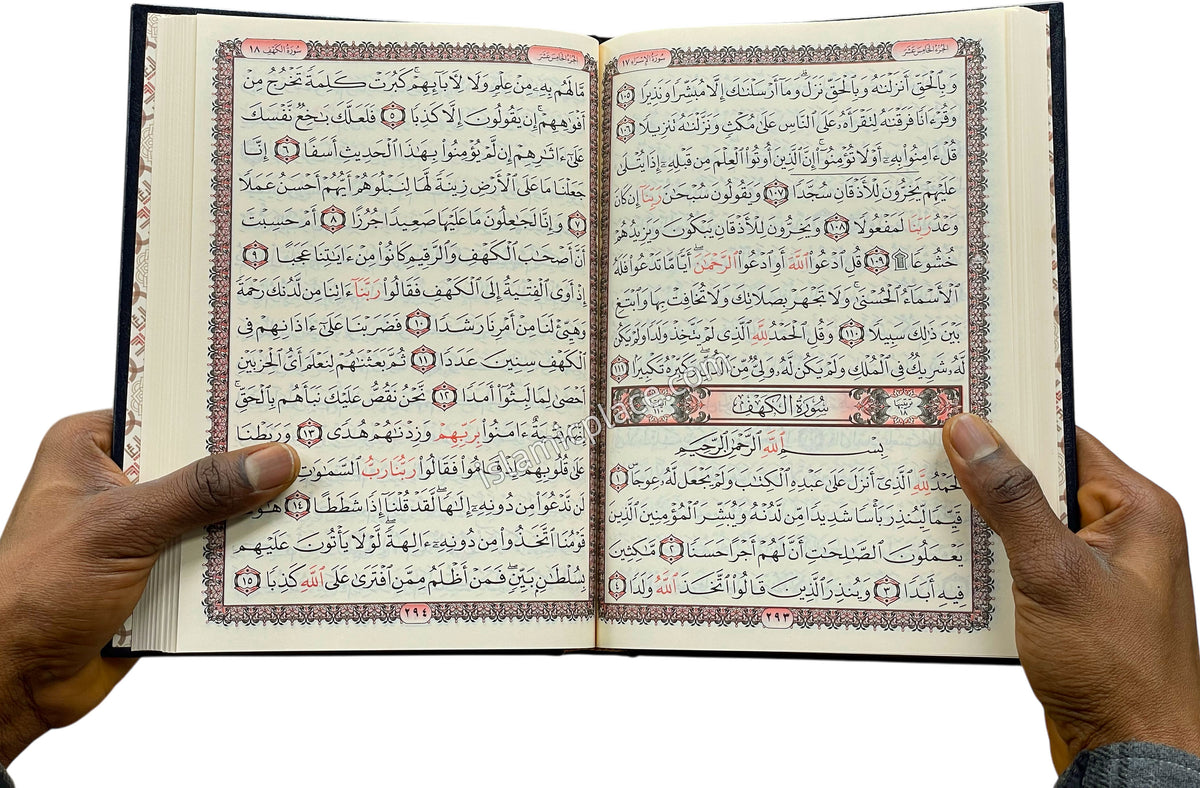 سُورَةُ الإِسْرَاء ١٧
الجُزءُ الخَامِسَ عَشَر
وَبِٱلْحَقِّ أَنزَلْنَٰهُ وَبِٱلْحَقِّ نَزَلَ ۗ وَمَآ أَرْسَلْنَٰكَ إِلَّا مُبَشِّرًا وَنَذِيرًا ١٠٥
وَقُرْءَانًا فَرَقْنَٰهُ لِتَقْرَأَهُۥ عَلَى ٱلنَّاسِ عَلَىٰ مُكْثٍ وَنَزَّلْنَٰهُ تَنزِيلًا ١٠٦
قُلْ ءَامِنُوا۟ بِهِۦٓ أَوْ لَا تُؤْمِنُوٓا۟ ۚ إِنَّ ٱلَّذِينَ أُوتُوا۟ ٱلْعِلْمَ مِن قَبْلِهِۦٓ إِذَا يُتْلَىٰ
عَلَيْهِمْ يَخِرُّونَ لِلْأَذْقَانِ سُجَّدًا ١٠٧ وَيَقُولُونَ سُبْحَٰنَ رَبِّنَآ إِن كَانَ
وَعْدُ رَبِّنَا لَمَفْعُولًا ١٠٨ وَيَخِرُّونَ لِلْأَذْقَانِ يَبْكُونَ وَيَزِيدُهُمْ
خُشُوعًا ۩ ١٠٩ قُلِ ٱدْعُوا۟ ٱللَّهَ أَوِ ٱدْعُوا۟ ٱلرَّحْمَٰنَ ۖ أَيًّا مَّا تَدْعُوا۟ فَلَهُ
ٱلْأَسْمَآءُ ٱلْحُسْنَىٰ ۚ وَلَا تَجْهَرْ بِصَلَاتِكَ وَلَا تُخَافِتْ بِهَا وَٱبْتَغِ
بَيْنَ ذَٰلِكَ سَبِيلًا ١١٠ وَقُلِ ٱلْحَمْدُ لِلَّهِ ٱلَّذِى لَمْ يَتَّخِذْ وَلَدًا وَلَمْ يَكُن
لَّهُۥ شَرِيكٌ فِى ٱلْمُلْكِ وَلَمْ يَكُن لَّهُۥ وَلِىٌّ مِّنَ ٱلذُّلِّ ۖ وَكَبِّرْهُ تَكْبِيرًۢا ١١١
سُورَةُ الكَهْف
بِسْمِ ٱللَّهِ ٱلرَّحْمَٰنِ ٱلرَّحِيمِ
ٱلْحَمْدُ لِلَّهِ ٱلَّذِىٓ أَنزَلَ عَلَىٰ عَبْدِهِ ٱلْكِتَٰبَ وَلَمْ يَجْعَل لَّهُۥ عِوَجَا ۜ ١
قَيِّمًا لِّيُنذِرَ بَأْسًا شَدِيدًا مِّن لَّدُنْهُ وَيُبَشِّرَ ٱلْمُؤْمِنِينَ ٱلَّذِينَ
يَعْمَلُونَ ٱلصَّٰلِحَٰتِ أَنَّ لَهُمْ أَجْرًا حَسَنًا ٢ مَّٰكِثِينَ
فِيهِ أَبَدًا ٣ وَيُنذِرَ ٱلَّذِينَ قَالُوا۟ ٱتَّخَذَ ٱللَّهُ وَلَدًا ٤
٢٩٣
سُورَةُ الكَهْف ١٨
الجُزءُ الخَامِسَ عَشَر
مَّا لَهُم بِهِۦ مِنْ عِلْمٍ وَلَا لِءَابَآئِهِمْ ۚ كَبُرَتْ كَلِمَةً تَخْرُجُ مِنْ
أَفْوَٰهِهِمْ ۚ إِن يَقُولُونَ إِلَّا كَذِبًا ٥ فَلَعَلَّكَ بَٰخِعٌ نَّفْسَكَ
عَلَىٰٓ ءَاثَٰرِهِمْ إِن لَّمْ يُؤْمِنُوا۟ بِهَٰذَا ٱلْحَدِيثِ أَسَفًا ٦ إِنَّا
جَعَلْنَا مَا عَلَى ٱلْأَرْضِ زِينَةً لَّهَا لِنَبْلُوَهُمْ أَيُّهُمْ أَحْسَنُ عَمَلًا
٧ وَإِنَّا لَجَٰعِلُونَ مَا عَلَيْهَا صَعِيدًا جُرُزًا ٨ أَمْ حَسِبْتَ
أَنَّ أَصْحَٰبَ ٱلْكَهْفِ وَٱلرَّقِيمِ كَانُوا۟ مِنْ ءَايَٰتِنَا عَجَبًا ٩
إِذْ أَوَى ٱلْفِتْيَةُ إِلَى ٱلْكَهْفِ فَقَالُوا۟ رَبَّنَآ ءَاتِنَا مِن لَّدُنكَ رَحْمَةً
وَهَيِّئْ لَنَا مِنْ أَمْرِنَا رَشَدًا ١٠ فَضَرَبْنَا عَلَىٰٓ ءَاذَانِهِمْ فِى
ٱلْكَهْفِ سِنِينَ عَدَدًا ١١ ثُمَّ بَعَثْنَٰهُمْ لِنَعْلَمَ أَىُّ ٱلْحِزْبَيْنِ
أَحْصَىٰ لِمَا لَبِثُوٓا۟ أَمَدًا ١٢ نَّحْنُ نَقُصُّ عَلَيْكَ نَبَأَهُم بِٱلْحَقِّ ۚ
فِتْيَةٌ ءَامَنُوا۟ بِرَبِّهِمْ وَزِدْنَٰهُمْ هُدًى ١٣ وَرَبَطْنَا
عَلَىٰ قُلُوبِهِمْ إِذْ قَامُوا۟ فَقَالُوا۟ رَبُّنَا رَبُّ ٱلسَّمَٰوَٰتِ
لَن نَّدْعُوَا۟ مِن دُونِهِۦٓ إِلَٰهًا ۖ لَّقَدْ قُلْنَآ إِذًا شَطَطًا ١٤
قَوْمُنَا ٱتَّخَذُوا۟ مِن دُونِهِۦٓ ءَالِهَةً ۖ لَّوْلَا يَأْتُونَ عَلَيْهِم
بِسُلْطَٰنٍۭ بَيِّنٍ ۖ فَمَنْ أَظْلَمُ مِمَّنِ ٱفْتَرَىٰ عَلَى ٱللَّهِ كَذِبًا ١٥
٢٩٤
islamicplace.com